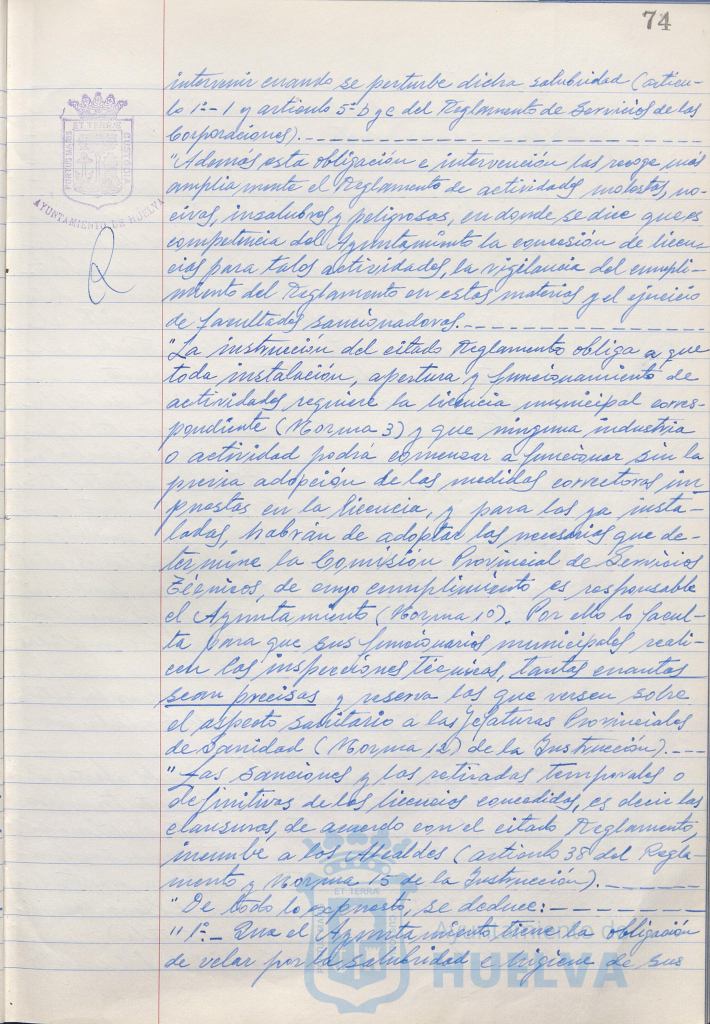 74
intervenir cuando se perturbe dicha salubridad (artícu-
lo 1º-1 y artículo 5º b y c del Reglamento de Servicios de las
Corporaciones).
"Además esta obligación e intervención las recoge más
ampliamente el Reglamento de actividades molestas, no-
civas, insalubres y peligrosas, en donde se dice que es
competencia del Ayuntamiento la concesión de licen-
cias para tales actividades, la vigilancia del cumpli-
miento del Reglamento en estas materias y el ejercicio
de facultades sancionadoras.
"La instrucción del citado Reglamento obliga a que
toda instalación, apertura y funcionamiento de
actividades requiere la licencia municipal corres-
pondiente (Norma 3) y que ninguna industria
o actividad podrá comenzar a funcionar sin la
previa adopción de las medidas correctoras im
puestas en la licencia, y para las ya insta-
ladas, habrán de adoptar las necesarias que de-
termine la Comisión Provincial de Servicios
Técnicos, de cuyo cumplimiento es responsable
el Ayuntamiento (Norma 10). Por ello lo facul-
ta para que sus funcionarios municipales reali-
cen las inspecciones técnicas, tantas cuantas
sean precisas y reserva las que versen sobre
el aspecto sanitario a las Jefaturas Provinciales
de Sanidad (Norma 12) de la Instrucción).
"Las sanciones y las retiradas temporales o
definitivas de las licencias concedidas, es decir las
clausuras, de acuerdo con el citado Reglamento,
incumbe a los Alcaldes (artículo 38 del Regla-
mento y Norma 15 de la Instrucción).
"De todo lo expuesto, se deduce:
"1º.- Que el Ayuntamiento tiene la obligación
de velar por la salubridad e higiene de sus
ET TERRAE
CUSTODIA
AYUNTAMIENTO DE HUELVA
ET TERRA
HUELVA